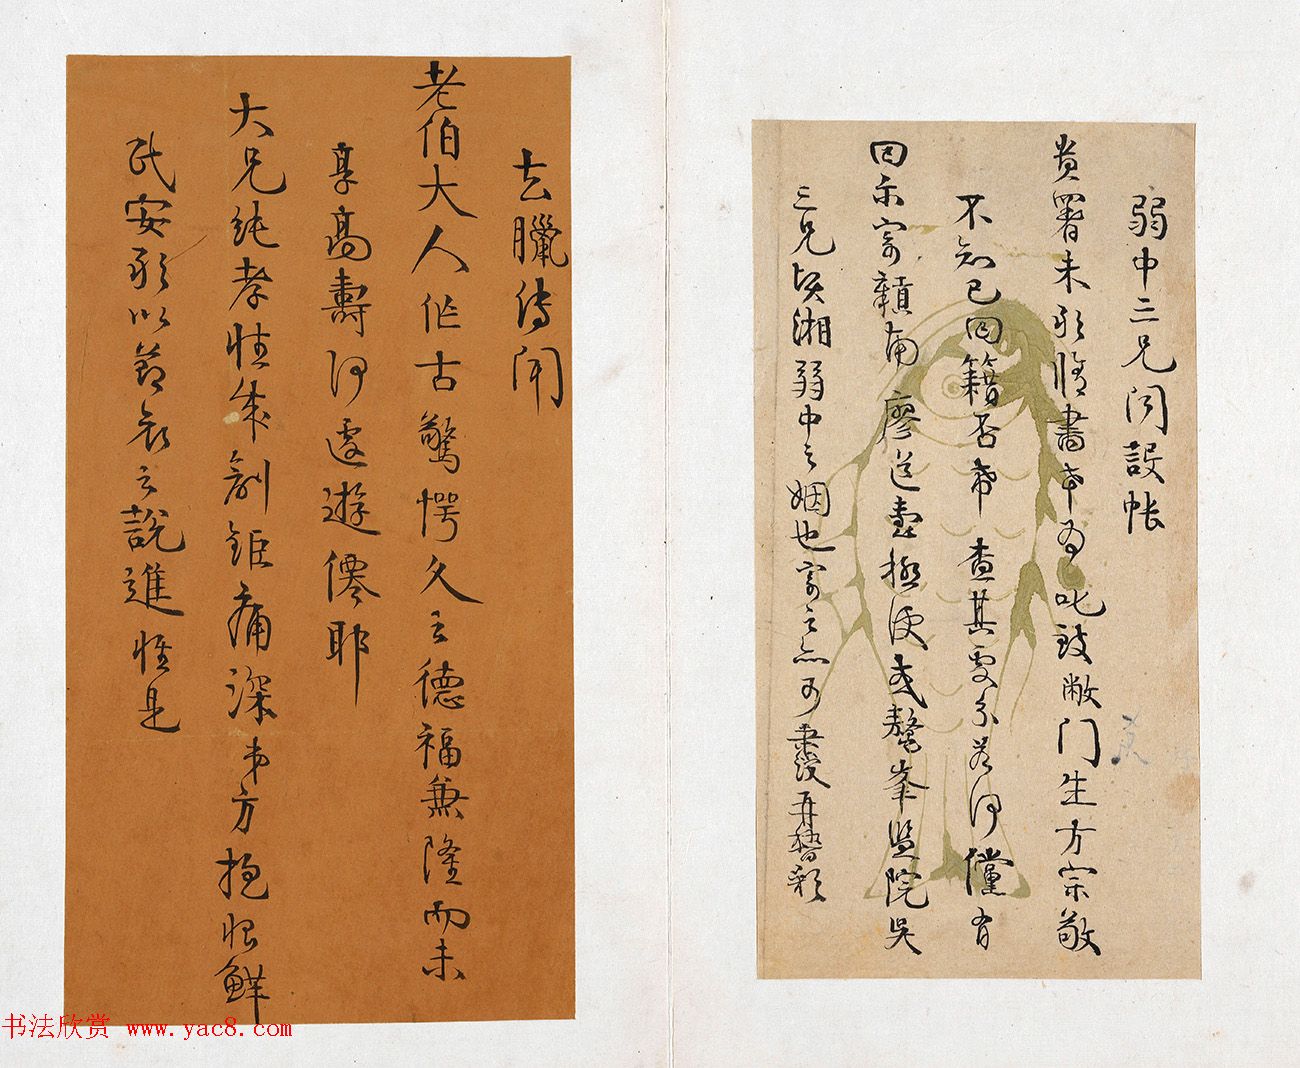 弱中三兄聞設帳
貴署未敢脩書幸為叱致敝門生方宗敬
不知已回籍否希 查其受分若何儻有
回示寄贛南廖道臺極便或鰲峯監院吳
三兄頃湘弱中之姻也寄之亦可 再稽
去臘傳聞
老伯大人作古驚愕久之德福兼隆而未
享高壽何遽遊僊耶
大兄純孝性成創鉅痛深弟方抱恨鮮
民安敢以節哀之說進惟是
书法欣赏 www.yac8.com